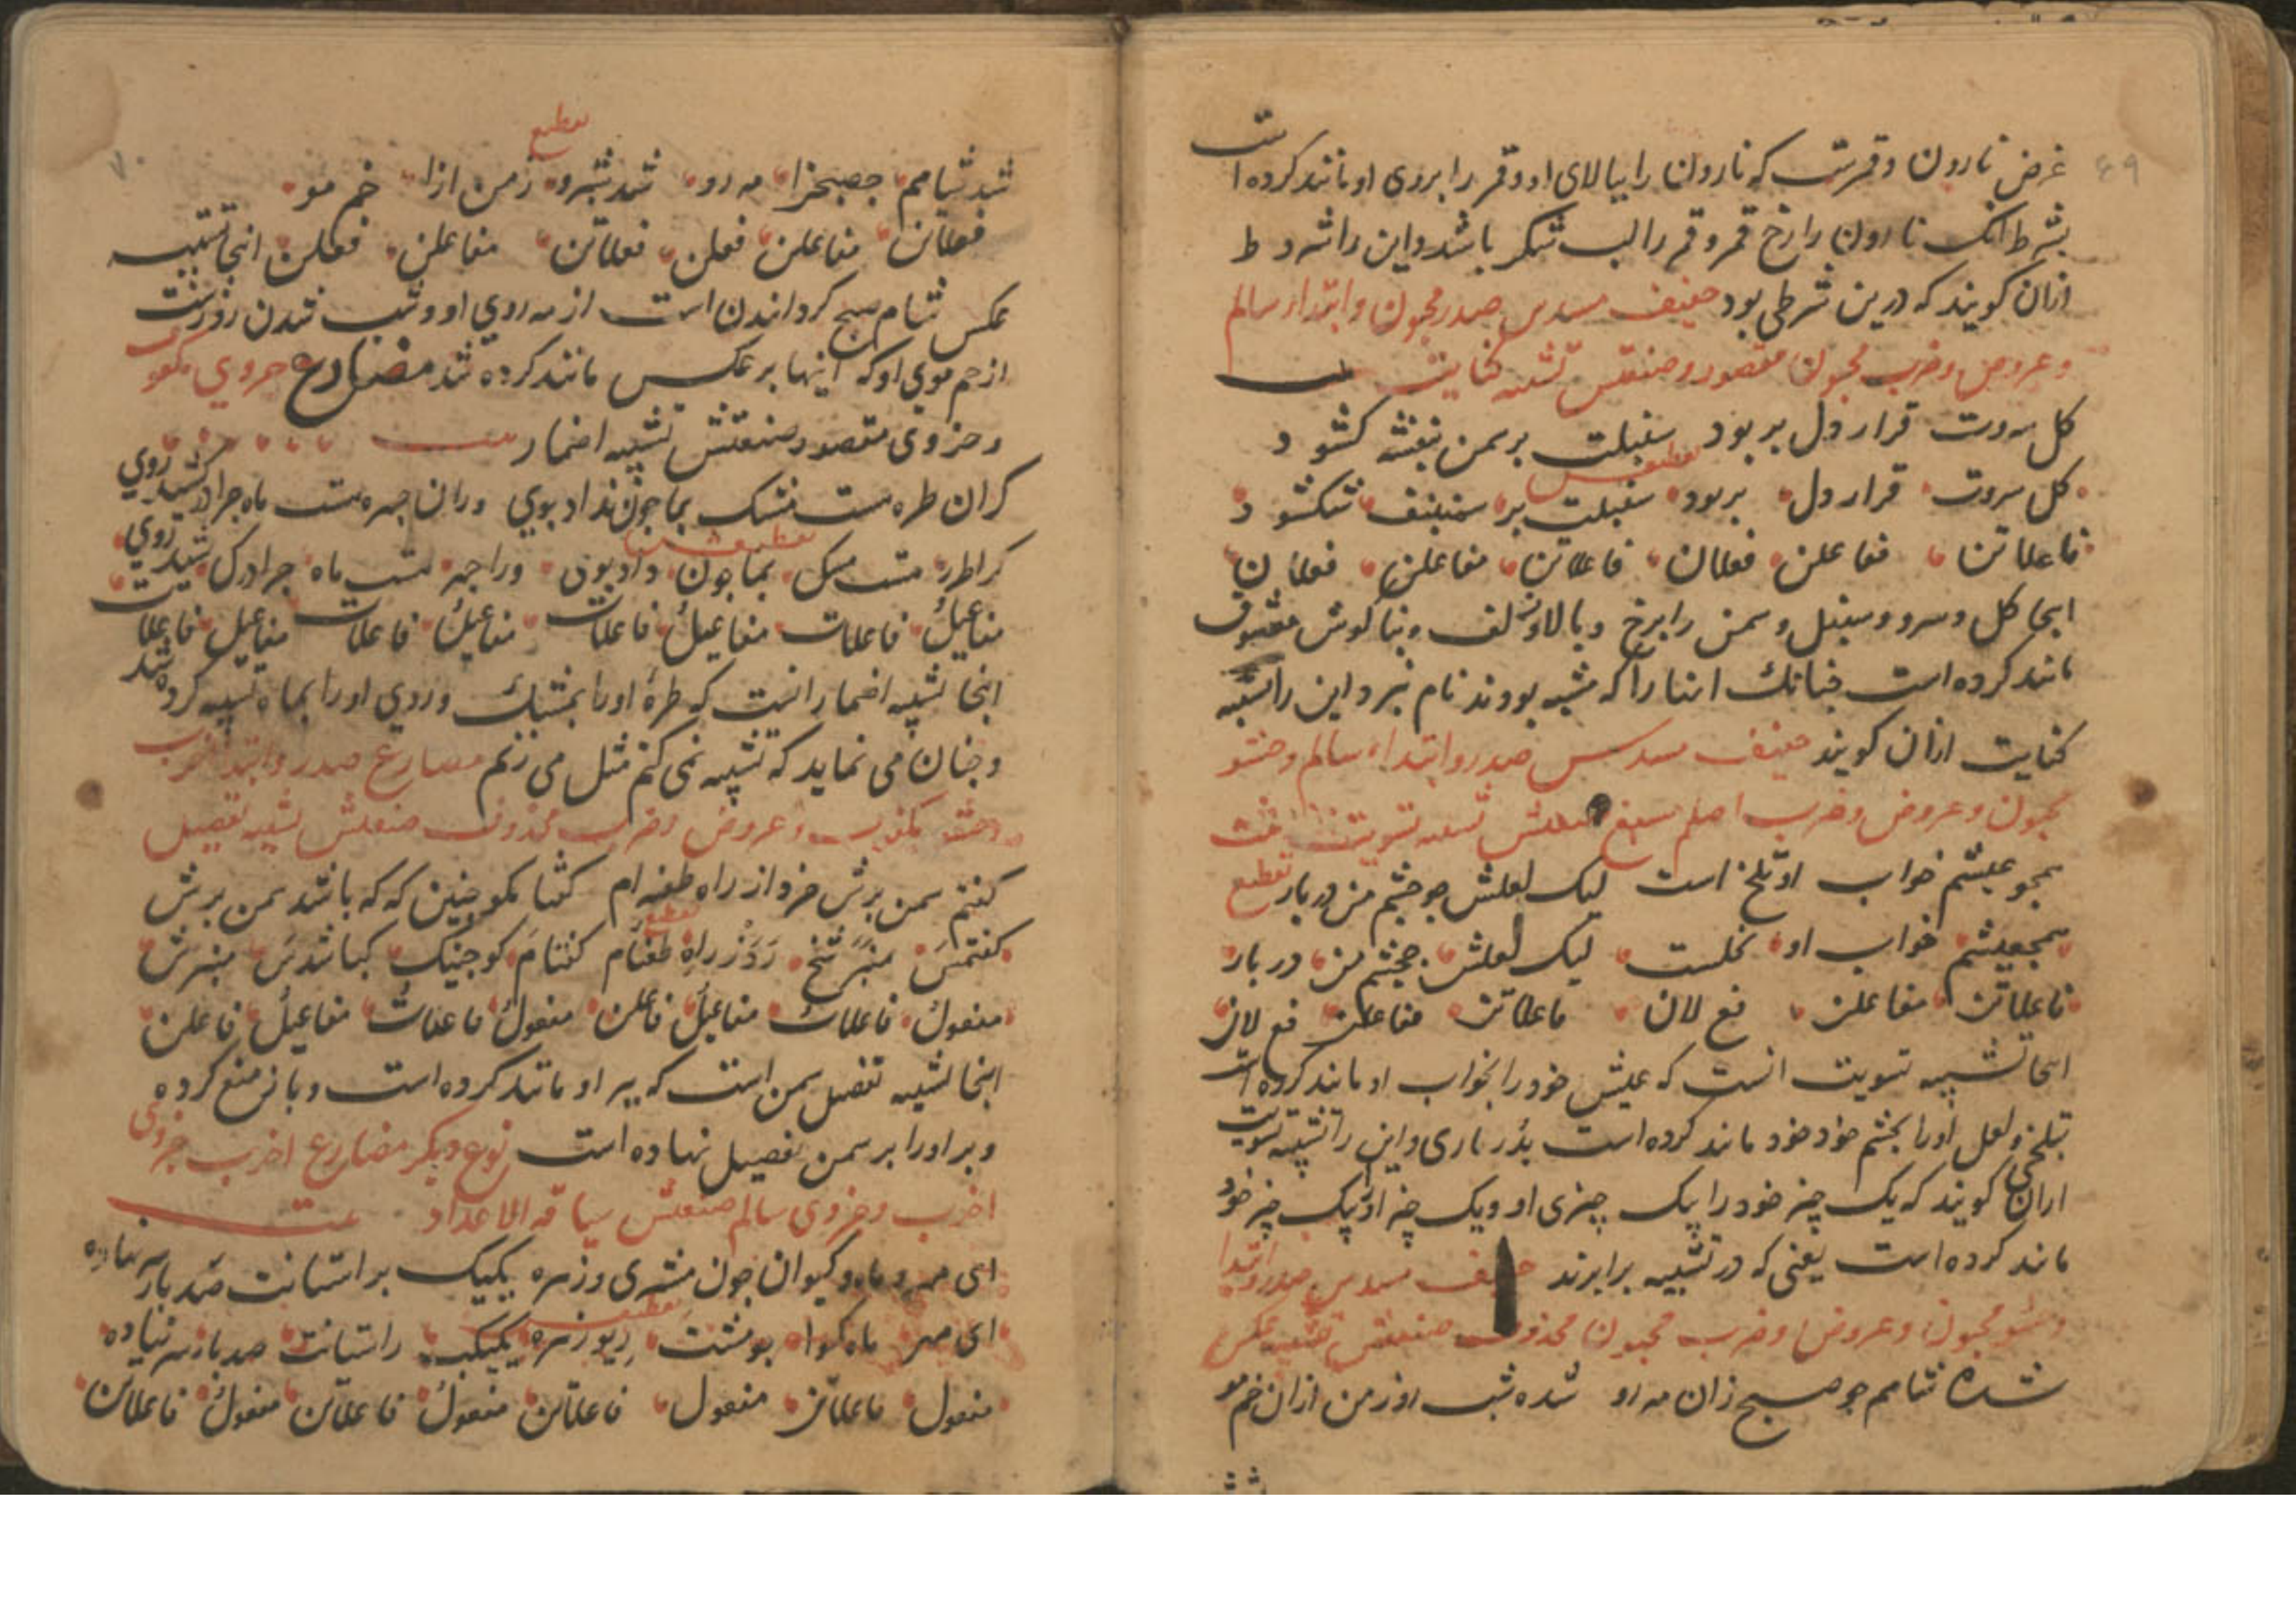 ۶۹
غرض نارون و قمرست که نارون را ببالای او و قمر را بروی او مانند کرده است
بشرط انک نارون را رخ قمر و قمر را لب شکر باشد و این را مشروط
ازان کویند که درین شرطی بود خفیف مسدس صدر مخبون و ابتدا سالم
و عروض و ضرب مخبون مقصور و صنعتس تشبیه کنایت
کل سروت قرار دل بربود سنبلت بر سمن بنفشه کشود
تقطیعس
کل سروت قرار دل بربود سنبلت بر سمنبنف شکشود
فاعلاتن مفاعلن فعلان فاعلاتن مفاعلن فعلان
اینجا کل و سرو و سنبل و سمن را برخ و بالا و زلف و بناکوش معشوق
مانند کرده است چنانک اینها را که مشبه بودند نام نبرد و این را تشبیه
کنایت ازان کویند خفیف مسدس صدر و ابتداء سالم و حشو
مخبون و عروض و ضرب اصلم مسبغ صنعتش تشبیه تسویت
همچو عیشم خواب او تلخ است لیک لعلش چو چشم من دربار تقطیع
همچعیشم خواب او تلخست لیک لعلش چچشم من دربار
فاعلاتن مفاعلن فع لان فاعلاتن مفاعلن فع لان
اینجا تشبیه تسویت انست که عیش خود را بخواب او مانند کرده است
بتلخی و لعل او را بچشم خود خود مانند کرده است بدرباری و این را تشبیه تسویت
ازان کویند که یک چیز خود را بیک چیزی او و یک چیز او بیک چیز خود
مانند کرده است یعنی که در تشبیه برابرند خفیف مسدس صدر و ابتدا
و حشو مخبون و عروض و ضرب مخبون محذوف صنعتش تشبیه عکس
شده شامم چو صبح زان مه رو شده شب روز من ازان خم مو
۷۰
تقطیع
شد شامم چصبحزا مه رو شد شبرو زمن ازا خم مو
فعلاتن مفاعلن فعلن فعلاتن مفاعلن فعلن اینجا تشبیه
عکس شام صبح کردانیدن است از مه روی او و شب شدن روزست
از خم موی او که اینها بر عکس مانند کرده شد مضارع حروی مکفوف
و جزوی مقصور صنعتش تشبیه اضمار
کران طره است مشک بما چون نداد بوی وران چهره است ماه چرا در کشید روی
تقطیعس
کراطرر مشک بماچون داد بوی وراچهر است ماه چرادرک شید روی
مفاعیل فاعلات مفاعیل فاعلات مفاعیل فاعلات مفاعیل فاعلات
اینجا تشبیه اضمار انست که طره او را بمشک و روی او را بماه تشبیه کرده شد
و چنان می نماید که تشبیه نمی کنم مثل می زنم مضارع صدر و ابتدا اخرب
و حشو مکفوف و عروض و ضرب محذوف صنعتش تشبیه تفضیل
کفتم سمن برش خرد از راه طعنه ام کفتا مکو چنین که که باشد سمن برش
تقطیع
کفتمس منبرشخ ردزراه طعنام کفتام کوچنیک کباشدس منبرش
مفعول فاعلات مفاعیل فاعلن مفعول فاعلات مفاعیل فاعلن
اینجا تشبیه تفضیل سمن است که ببر او مانند کرده است و باز منع کرده
و بر او را بر سمن تفضیل نهاده است نوع دیکر مضارع اخرب جزوی
اخرب و جزوی سالم صنعتش سیاقه الاعداد
ای مهر و ماه و کیوان چون مشتری و زهره یکیک بر استانت صد بار سر نهاده
تقطیعس
ای مهر ماه کیوا چومشت ریوزهره یکیکب راستانت صدبارسر نهاده
مفعول فاعلاتن مفعول فاعلاتن مفعول فاعلاتن مفعول فاعلاتن